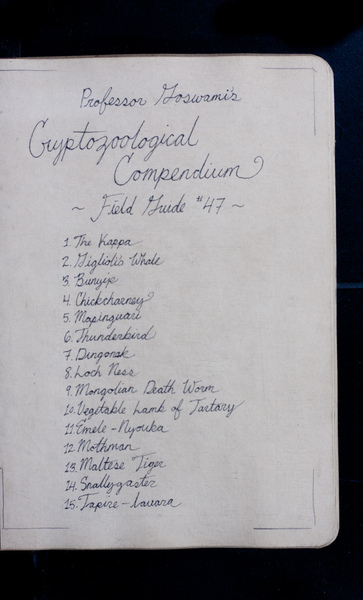 Professor Goswami's
Cryptozoological
Compendium
~ Field Guide #47 ~
1. The Kappa
2. Giglioli's Whale
3. Bunyip
4. Chickcharney
5. Mapinguari
6. Thunderbird
7. Dingonek
8. Loch Ness
9. Mongolian Death Worm
10. Vegitable Lamb of Tartary
11. Emele-Nyouka
12. Mothman
13. Maltese Tiger
14. Snallygaster
15. Tapire-Iauara